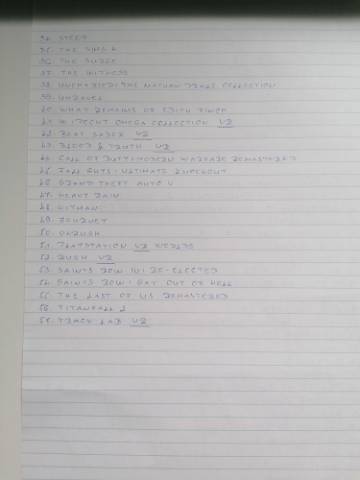 34. STEEP
35. THE SIMS 4
36. THE SURGE
37. THE WITNESS
38. UNCHARTED: THE NATHAN DRAKE COLLECTION
39. UNRAVEL
40. WHAT REMAINS OF EDITH FINCH
41. WIPEOUT OMEGA COLLECTION VR
42. BEAT SABER VR
43. BLOOD & TRUTH VR
44. CALL OF DUTY: MODERN WARFARE REMASTERED
45. FALL GUYS: ULTIMATE KNOCKOUT
46. GRAND THEFT AUTO V
47. HEAVY RAIN
48. HITMAN
49. JOURNEY
50.
51. PLAYSTATION VR WORLDS
52. RUSH VR
53. SAINTS ROW IV: RE-ELECTED
54. SAINTS ROW: GAT OUT OF HELL
55. THE LAST OF US REMASTERED
56. TITANFALL 2
57. TRACK LAB VR